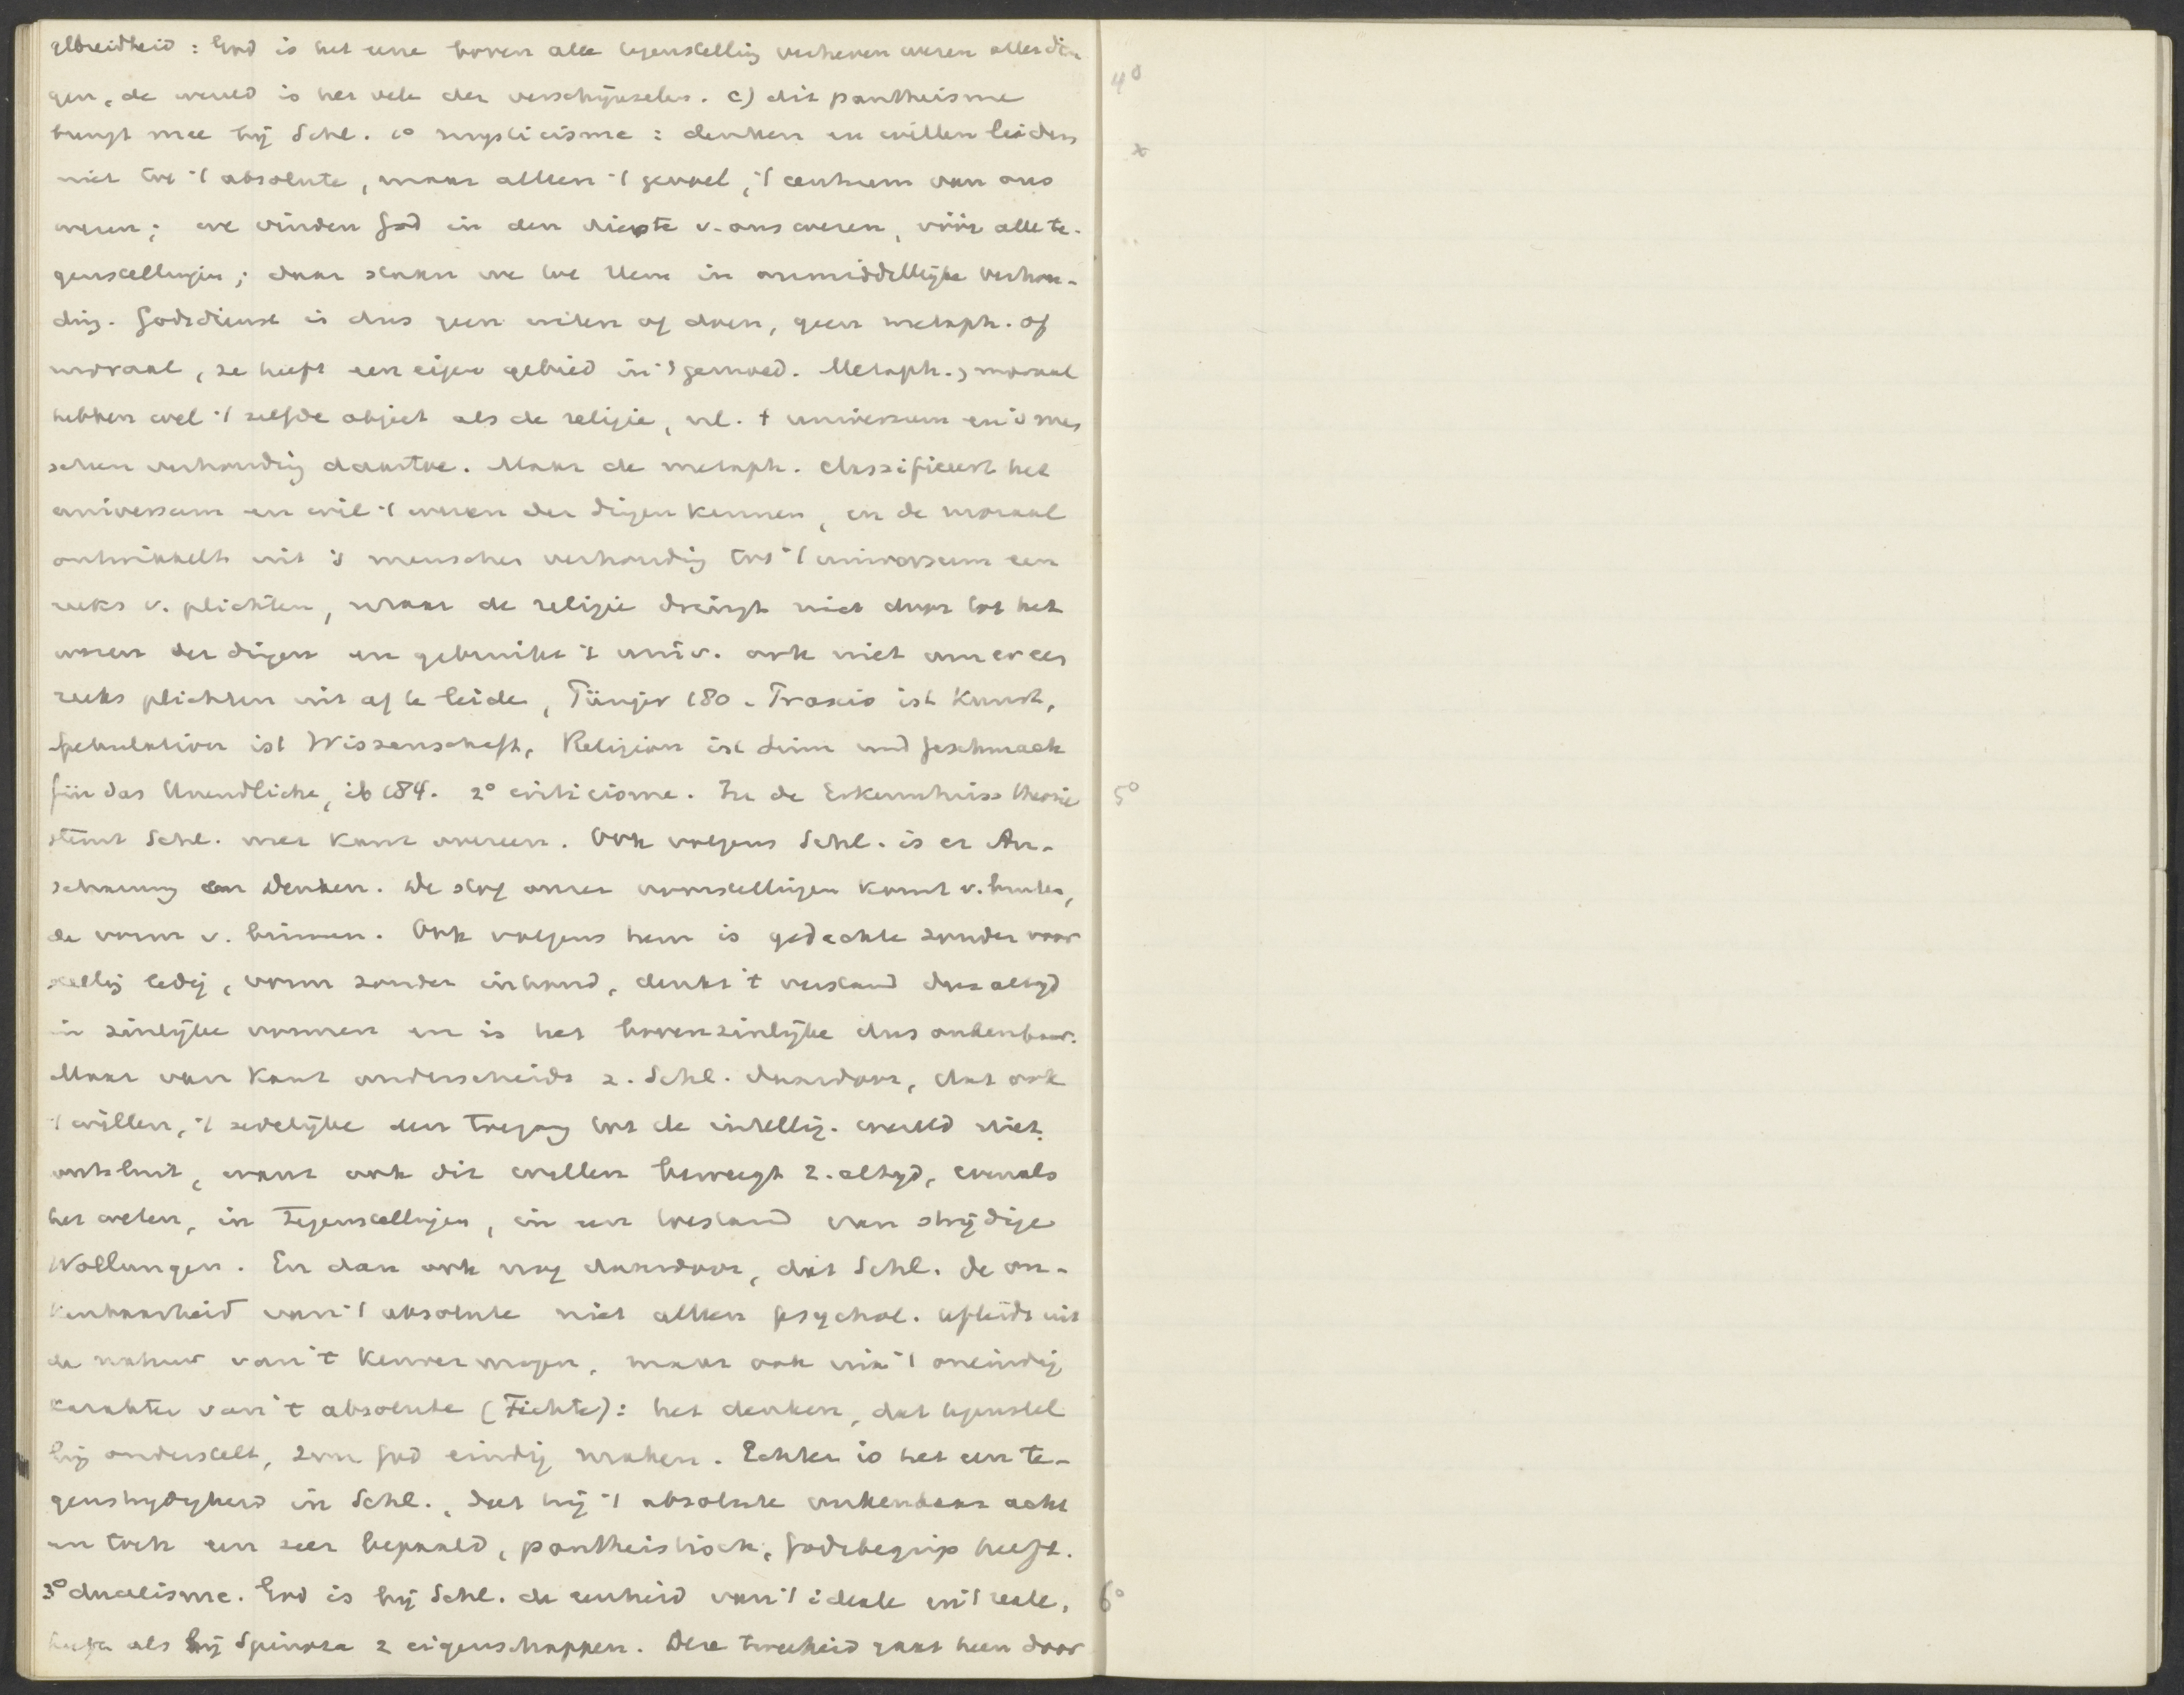 gebreidheid: God is het eene boven alle tegenstelling verheven wezen aller din
gen, de wereld is het vele der verschijnselen. c) dit pantheisme
brengt mee bij Schl. 1° mysticisme: denken en willen leiden
niet tot 't absolute, maar alleen 't gevoel, 't centrum van ons
wezen; we vinden God in den diepste v. ons wezen, vóór alle te-
genstellingen; daar staan we tot Hem in onmiddellijke verhou-
ding. Godsdienst is dus geen weten of doen, geen metaph. of
moraal, ze heeft een eigen gebied in 't gemoed. Metaph. , moraal
hebben wel 't zelfde object als de religie, nl. 't universum en 's men
schen verhouding daartoe. Maar de metaph. classificeert het
universum en wil 't wezen der dingen kennen, en de moraal
ontwikkelt uit 's menschen verhouding tot 't universum een
reeks v. plichten, maar de religie dringt niet door tot het
wezen der dingen en gebruikt 't univ. ook niet om er een
reeks plichten uit af te leide, Pünjer 180. Praxis ist Kunst,
Spekulation ist Wissenschaft, Religion ist Sinn und Geschmack
für das Unendliche, ib 184. 2° criticisme. In de Erkenntniss theorie
stemt Schl. met Kant overeen. Ook volgens Schl. is er An-
schauung en Denken. De stof onzer voorstellingen komt v. buiten,
de vorm v. binnen. Ook volgens hem is gedachte zonder voor
stelling ledig, vorm zonder inhoud, denkt 't verstand dus altijd
in zinlijke vormen en is het bovenzinlijke dus onkenbaar.
Maar van Kant onderscheidt z. Schl. daardoor, dat ook
't willen, 't zedelijke den toegang tot de intellig. wereld niet
ontsluit, want ook dit willen beweegt z. altijd, evenals
het weten, in tegenstellingen, in een toestand van strijdige
Wollungen. En dan ook nog daardoor, dat Schl. de on-
kenbaarheid van 't absolute niet alleen psychol. afleidt uit
de natuur van 't kenvermogen, maar ook uit 't oneindig
karakter van 't absolute (Fichte): het denken, dat tegenstel
ling onderstelt, zou God eindig maken. Echter is het een te-
genstrijdigheid in Schl., dat hij 't absolute onkenbaar acht
en toch een zeer bepaald, pantheistisch, Godsbegrip heeft.
3° dualisme. God is bij Schl. de eenheid van 't ideale en 't reale,
heeft als bij Spinoza 2 eigenschappen. Deze tweeheid gaat heen door
4°
x
5°
6°